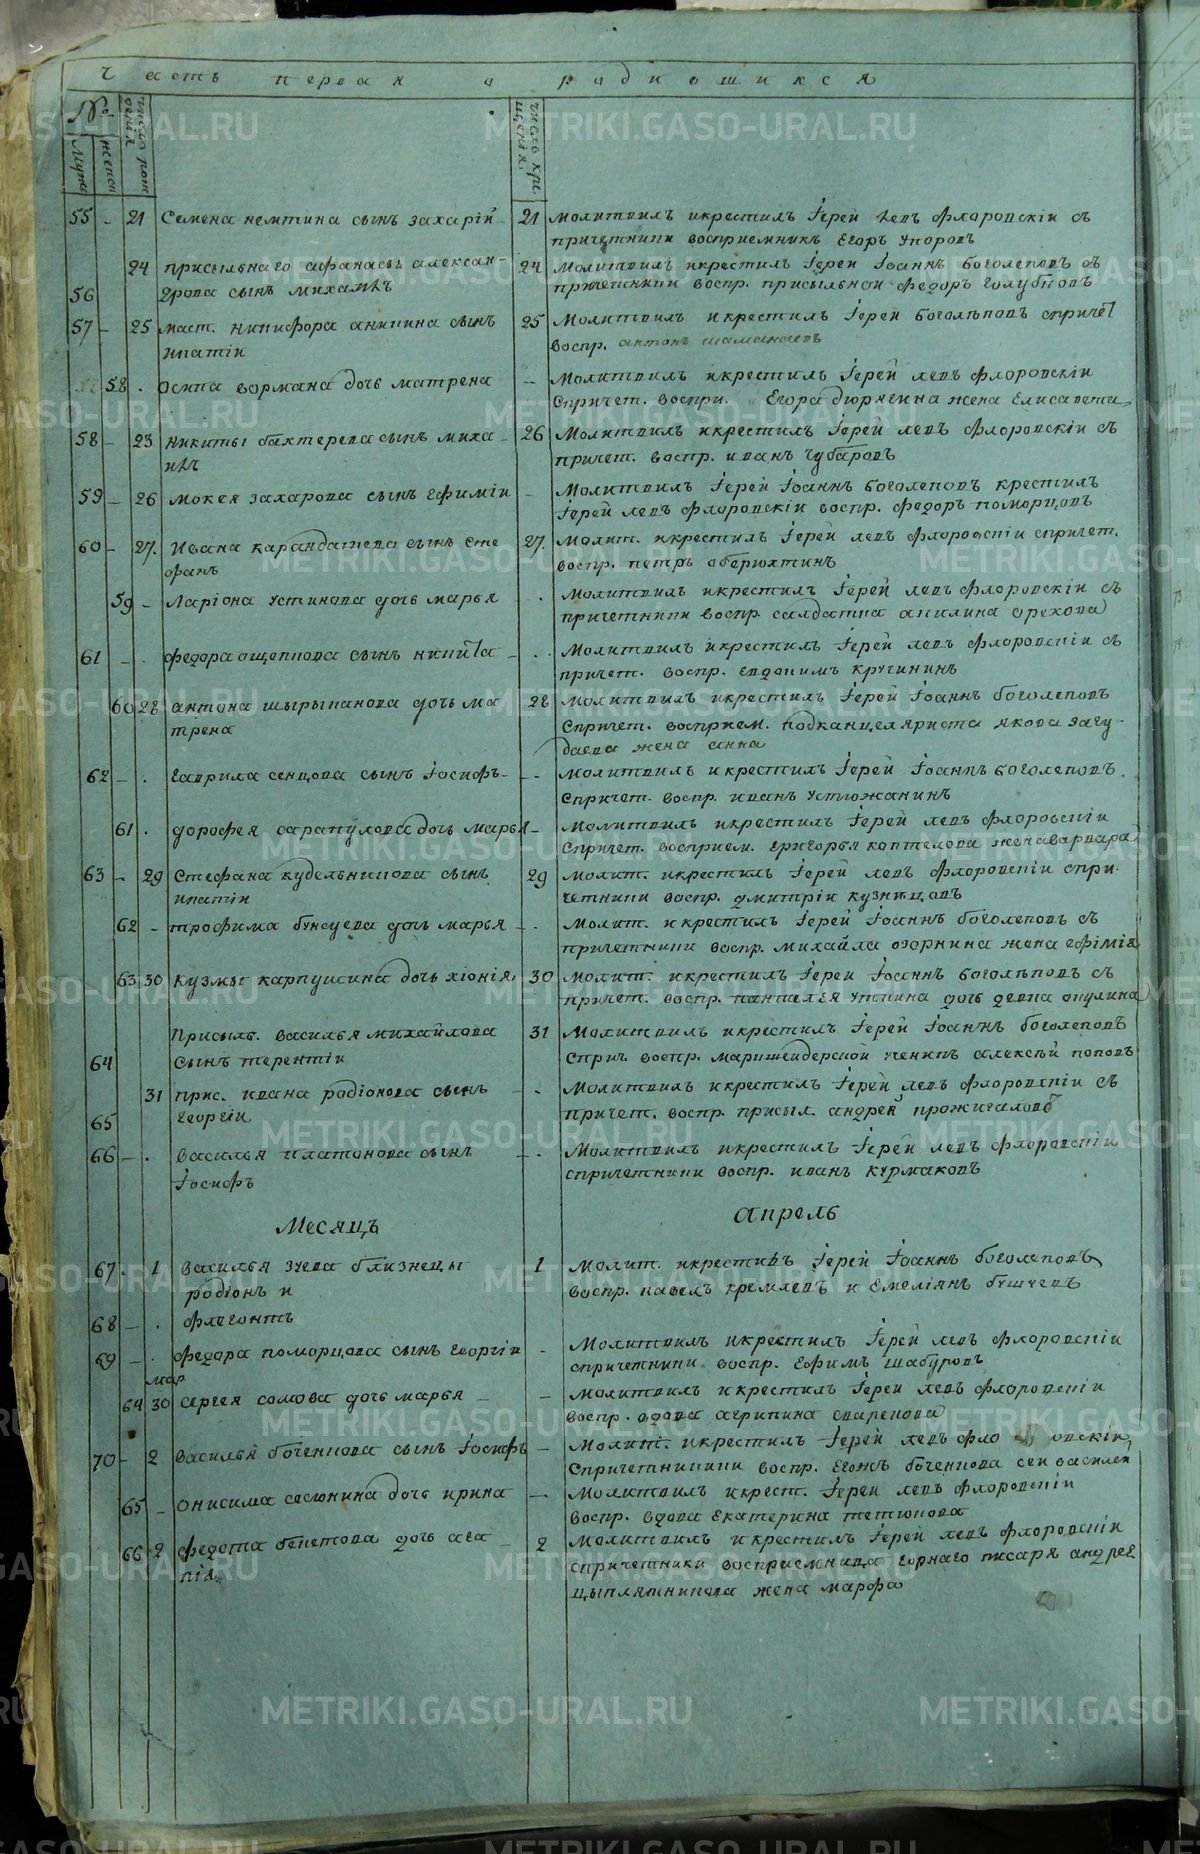 Часть первая о родившихся
№
Муж
женск
число рож
денія
число кре
щенія
55 - 21 Семена немтина сынъ захарій - 21 Молитвилъ икрестилъ Іерей левъ флоровскіи съ
причетники восприемникъ Егоръ упоровъ
24 присыльнаго афанасья алексан- 24 Молитвилъ икрестилъ Іереи Іоаннъ боголеповъ съ
56 дрова сынъ михаилъ причетники воспр. присыльной федоръ голубцовъ
57 - 25 маст. никифора аникина сынъ 25 Молитвилъ икрестилъ Іерей боголѣповъ спричет
ипатіи воспр. антонъ шаманаевъ
58 . осипа вормана дочь матрена - Молитвилъ икрестилъ Іерей левъ флоровскіи
Спричет. воспри. Егора дюрягина жена Елисавета
58 - 23 никиты бахтерева сынъ миха - 26 Молитвилъ икрестилъ Іерей левъ флоровскіи съ
илъ причет. воспр. иванъ чубаровъ
59 - 26 мокея захарова сынъ ефиміи - Молитвилъ Іерей Іоаннъ боголеповъ крестилъ
Іерей левъ флоровскіи воспр. федоръ поморцовъ
60 - 27. Ивана карандашева сынъ сте 27. Молит. икрестилъ Іерей левъ флоровскіи спричет.
фанъ воспр. петръ оберюхтинъ
59 - Ларіона устинова дочь марья . Молитвилъ икрестилъ Іерей левъ флоровскіи съ
причетники воспр. салдатка акилина орехова
61 - . федора ощепкова сынъ никита - . Молитвилъ икрестилъ Іерей левъ флоровскіи съ
причет. воспр. Евдокимъ кручининъ
60 28 антона шырыканова дочь ма 28 Молитвилъ икрестилъ Іерей Іоаннъ боголеповъ
трена Спричет. восприем. подканцеляриста якова загу-
даева жена анна
62 - . гаврила сенцова сынъ Іосифъ - - Молитвилъ икрестилъ Іерей Іоаннъ боголеповъ.
Спричет. воспр. иванъ устюжанинъ
61 . дорофея сарапулова дочь марья - Молитвилъ икрестилъ Іерей левъ флоровскіи
Спричет. восприем. григорья коптелова жена варвара
63 - 29 Стефана кудельникова сынъ 29 Молит. икрестилъ Іерей левъ флоровскіи спри-
ипатіи четники воспр. дмитріи кузнецовъ
62 - трофима бунзуева дочь марья - . Молит. икрестилъ Іерей Іоаннъ боголеповъ съ
причетники воспр. михайла озорнина жена ефимія
63 30 кузмы карпушина дочь хіонія 30 Молит. икрестилъ Іереи Іоаннъ боголѣповъ съ
причет. воспр. пантелея уткина дочь девка окулина
Присыль. василья михайлова 31 Молитвилъ икрестилъ Іерей Іоаннъ боголеповъ
64 сынъ терентіи Сприч. воспр. маркшейдерской ученикъ алексѣй поповъ
31 прис. ивана родіонова сынъ - . Молитвилъ икрестилъ Іерей левъ флоровскіи съ
65 георгіи причет. воспр. присыл. андрей прожигаловъ
66 - . василья платонова сынъ - . Молитвилъ икрестилъ Іерей левъ флоровскіи
Іосифъ спричетники воспр. иванъ курмаковъ
Месяцъ апрель
67 . 1 василья зуева близнецы 1 Молит. икрестилъ Іерей Іоаннъ боголеповъ
родіонъ и воспр. павелъ кремлевъ и Емеліянъ бушуевъ
68 - . флегонтъ
69 - . федора поморцова сынъ георгіи - Молитвилъ икрестилъ Іерей левъ флоровскіи
спричетники воспр. Ефимъ шабуровъ
мар
64 30 сергея сомова дочь марья - - Молитвилъ икрестилъ Іереи левъ флоровскіи
воспр. вдова агрипина
70 - 2 василья боченкова сынъ Іосифъ - Молит. икрестилъ Іерей левъ флоровскіи
Спричетники воспр. боченкова сынъ василей
65 - онисима сесюнина дочь ирина - Молитвилъ икрест. Іереи левъ флоровскіи
воспр. вдова Екатерина тетюкова
66 2 федота бекетова дочь ага - 2 Молитвилъ икрестилъ Іереи левъ флоровскіи
пія спричетники восприемница горнаго писаря андрея
цыплятникова жена марфа